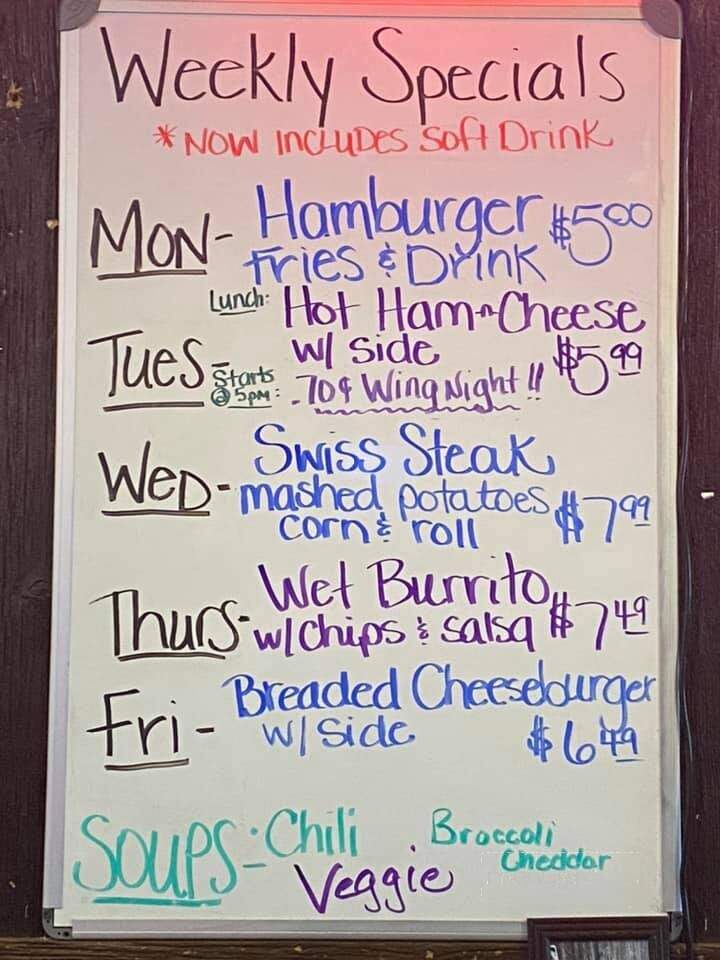 Weekly Specials
* NOW INCLUDES Soft Drink
MON- Hamburger $5.00
Fries & Drink
Lunch: Hot Ham-n-Cheese
Tues- w/ Side $5.99
Starts @ 5PM: .70¢ Wing Night!!
WED- Swiss Steak
mashed potatoes $7.99
corn & roll
Thurs- Wet Burrito
w/ chips & salsa $7.49
Fri- Breaded Cheeseburger
w/ Side $6.49
SOUPS: Chili Broccoli Cheddar
Veggie